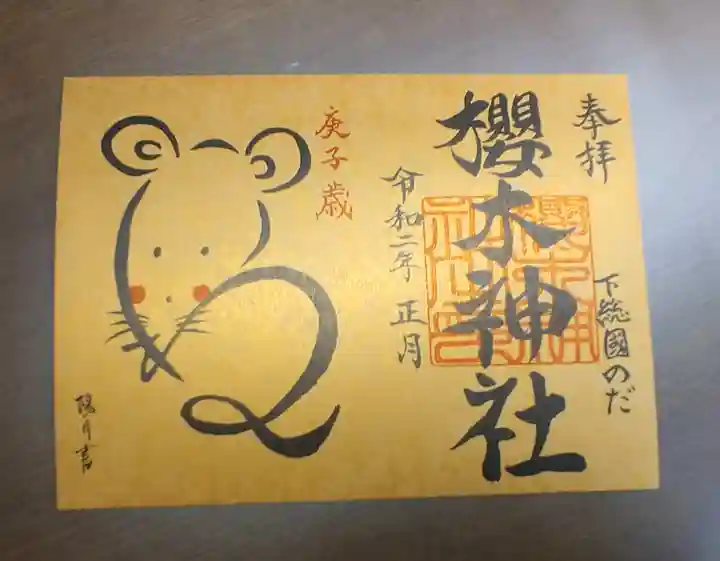 奉拝
下総國のだ
櫻木神社
令和二年 正月
庚子歳